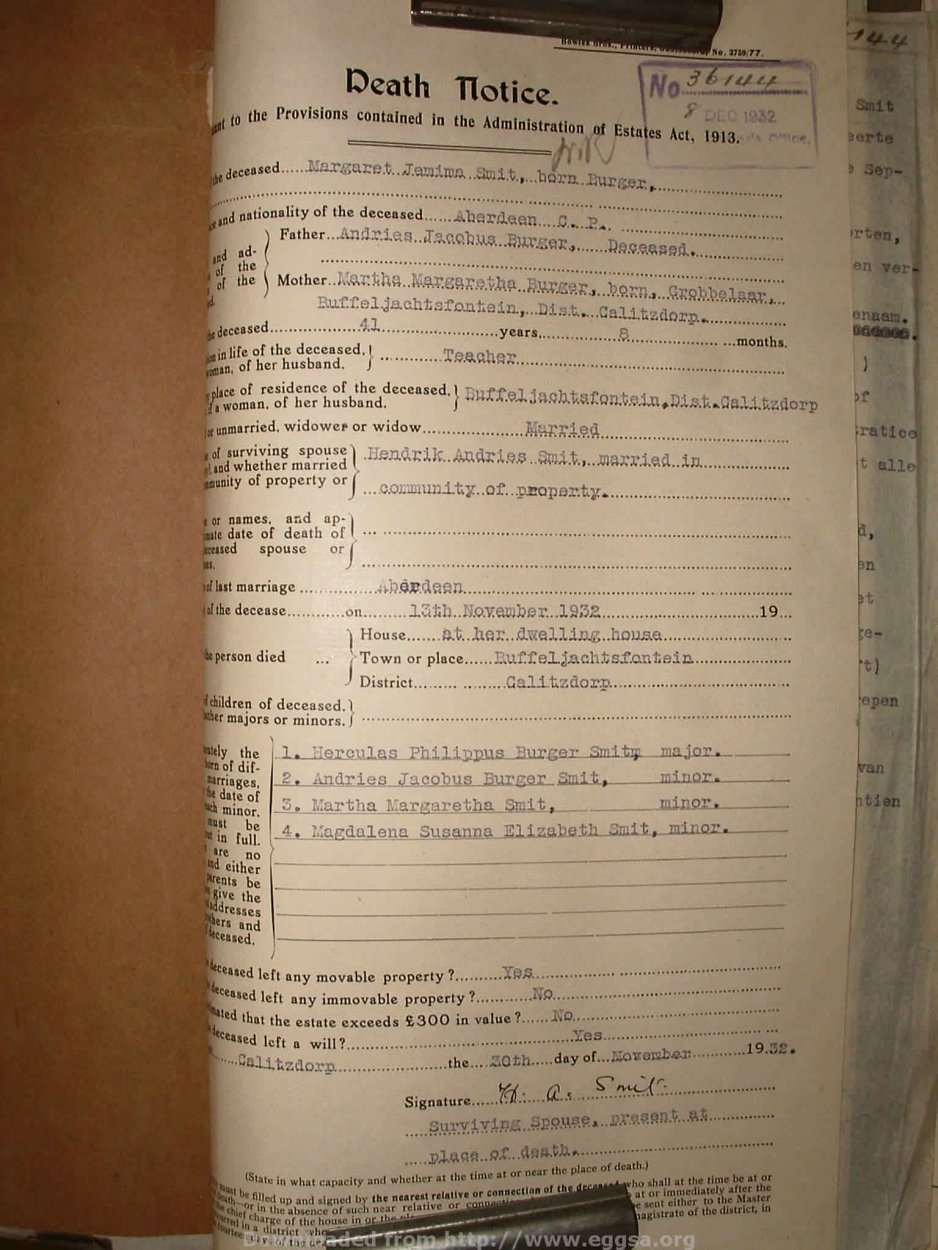 No. 3759/77.
Death Notice.
No 36144
8 DEC 1932
to the Provisions contained in the Administration of Estates Act, 1913.
the deceased Margaret Jemima Smit, born Burger,
and nationality of the deceased Aberdeen C. P.
and ad-
of the
of the
Father Andries Jacobus Burger, Deceased.
Mother Martha Margaretha Burger, born, Grobbelaar,
Buffeljachtsfontein, Dist. Calitzdorp.
deceased 41 years 8 months.
in life of the deceased,
of her husband.
Teacher
place of residence of the deceased.
a woman, of her husband.
Buffeljachtsfontein, Dist. Calitzdorp
or unmarried, widower or widow Married
of surviving spouse
and whether married
property or
Hendrik Andries Smit, married in
community of property.
or names, and ap-
date of death of
spouse or
of last marriage Aberdeen
of the decease on 13th November 1932 19
person died ...
House at her dwelling house
Town or place Buffeljachtsfontein
District Calitzdorp
children of deceased.
majors or minors.
the
of dif-
the date of
minor.
must be
in full.
are no
and either
be
give the
and
1. Herculas Philippus Burger Smit, major.
2. Andries Jacobus Burger Smit, minor.
3. Martha Margaretha Smit, minor.
4. Magdalena Susanna Elizabeth Smit, minor.
deceased left any movable property? Yes
deceased left any immovable property? No
that the estate exceeds £300 in value? No
deceased left a will? Yes
Calitzdorp the 30th day of November 1932.
Signature H. A. Smit.
Surviving Spouse, present at
place of death.
(State in what capacity and whether at the time at or near the place of death.)
must be filled up and signed by the nearest relative or connection of the deceased who shall at the time be at or
or in the absence of such near relative or at or immediately after the
chief charge of the house in or the be sent either to the Master
in a district magistrate of the district, in
of the
http://www.eggsa.org
144
Smit
Sep-
en ver-
)
of
t alle
d,
en
et
ge-
t)
van